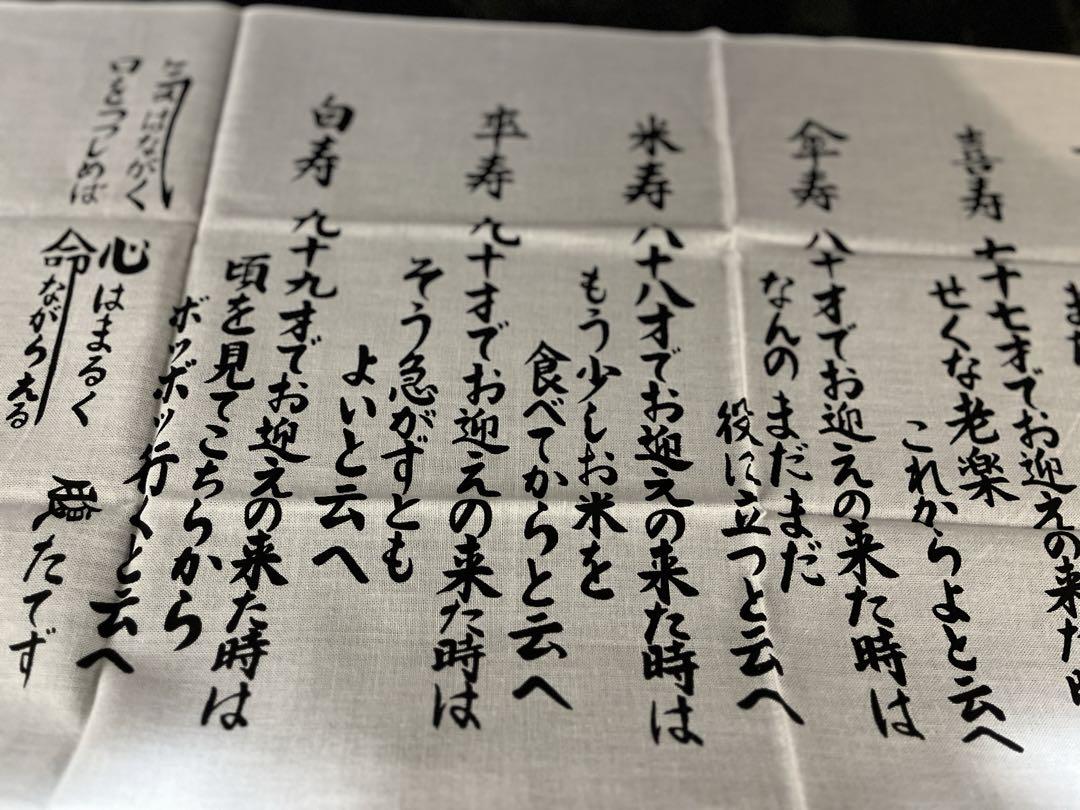 喜寿 七十七才でお迎えの来た時
せくな老楽
これからよと云へ
傘寿 八十才でお迎えの来た時は
なんのまだまだ
役に立つと云へ
米寿 八十八才でお迎えの来た時は
もう少しお米を
食べてからと云へ
卒寿 九十才でお迎えの来た時は
そう急がずとも
よいと云へ
白寿 九十九才でお迎えの来た時は
頃を見てこちらから
ボツボツ行くと云へ
気はながく 心はまるく 腹たてず
口をつつしめば 命ながらえる